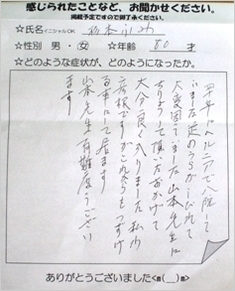 感じられたことなど、お聞かせください。
掲載予定ですので御了承ください。
☆氏名 イニシャルOK
☆性別 男・女 ☆年齢 80 才
☆どのような症状が、どのようになったか。
四年前にヘルニアで入院して
いました 足のうらがしびれて
大変困てました 山本先生に
よって頂いたおかげで
大分良くなりました 私も
ですがこれからもつづけ
る事にして居ます
山本先生有難度うござい
ます
ありがとうございました<m(__)m>